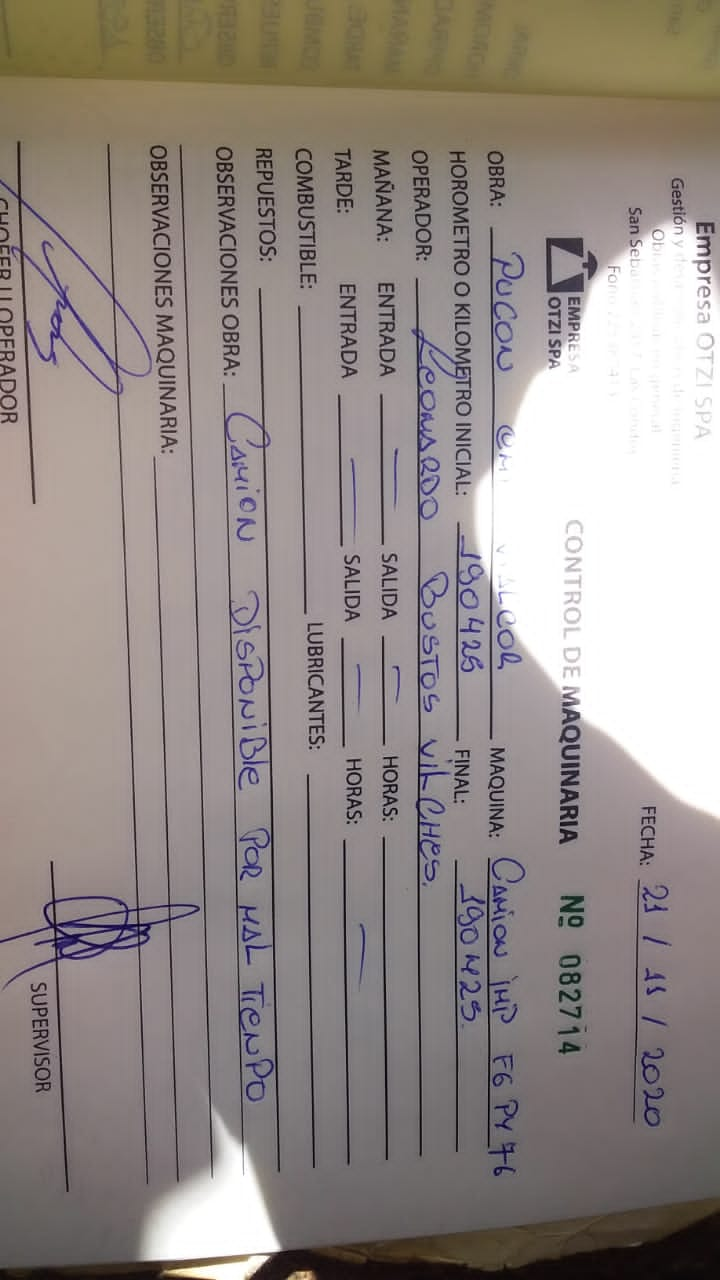 Empresa OTZI SPA
Gestión y
San Seba
EMPRESA
OTZI SPA
FECHA: 21 / 11 / 2020
CONTROL DE MAQUINARIA Nº 082714
OBRA: PUCON VIALCOR MAQUINA: CAMION IMP FG PY 76
HOROMETRO O KILOMETRO INICIAL: 190425 FINAL: 190425.
OPERADOR: LEONARDO BUSTOS VILCHES.
MAÑANA: ENTRADA — SALIDA — HORAS:
TARDE: ENTRADA — SALIDA — HORAS: —
COMBUSTIBLE: LUBRICANTES:
REPUESTOS:
OBSERVACIONES OBRA: CAMION DISPONIBLE POR MAL TIENPO
OBSERVACIONES MAQUINARIA:
CHOFER U OPERADOR SUPERVISOR